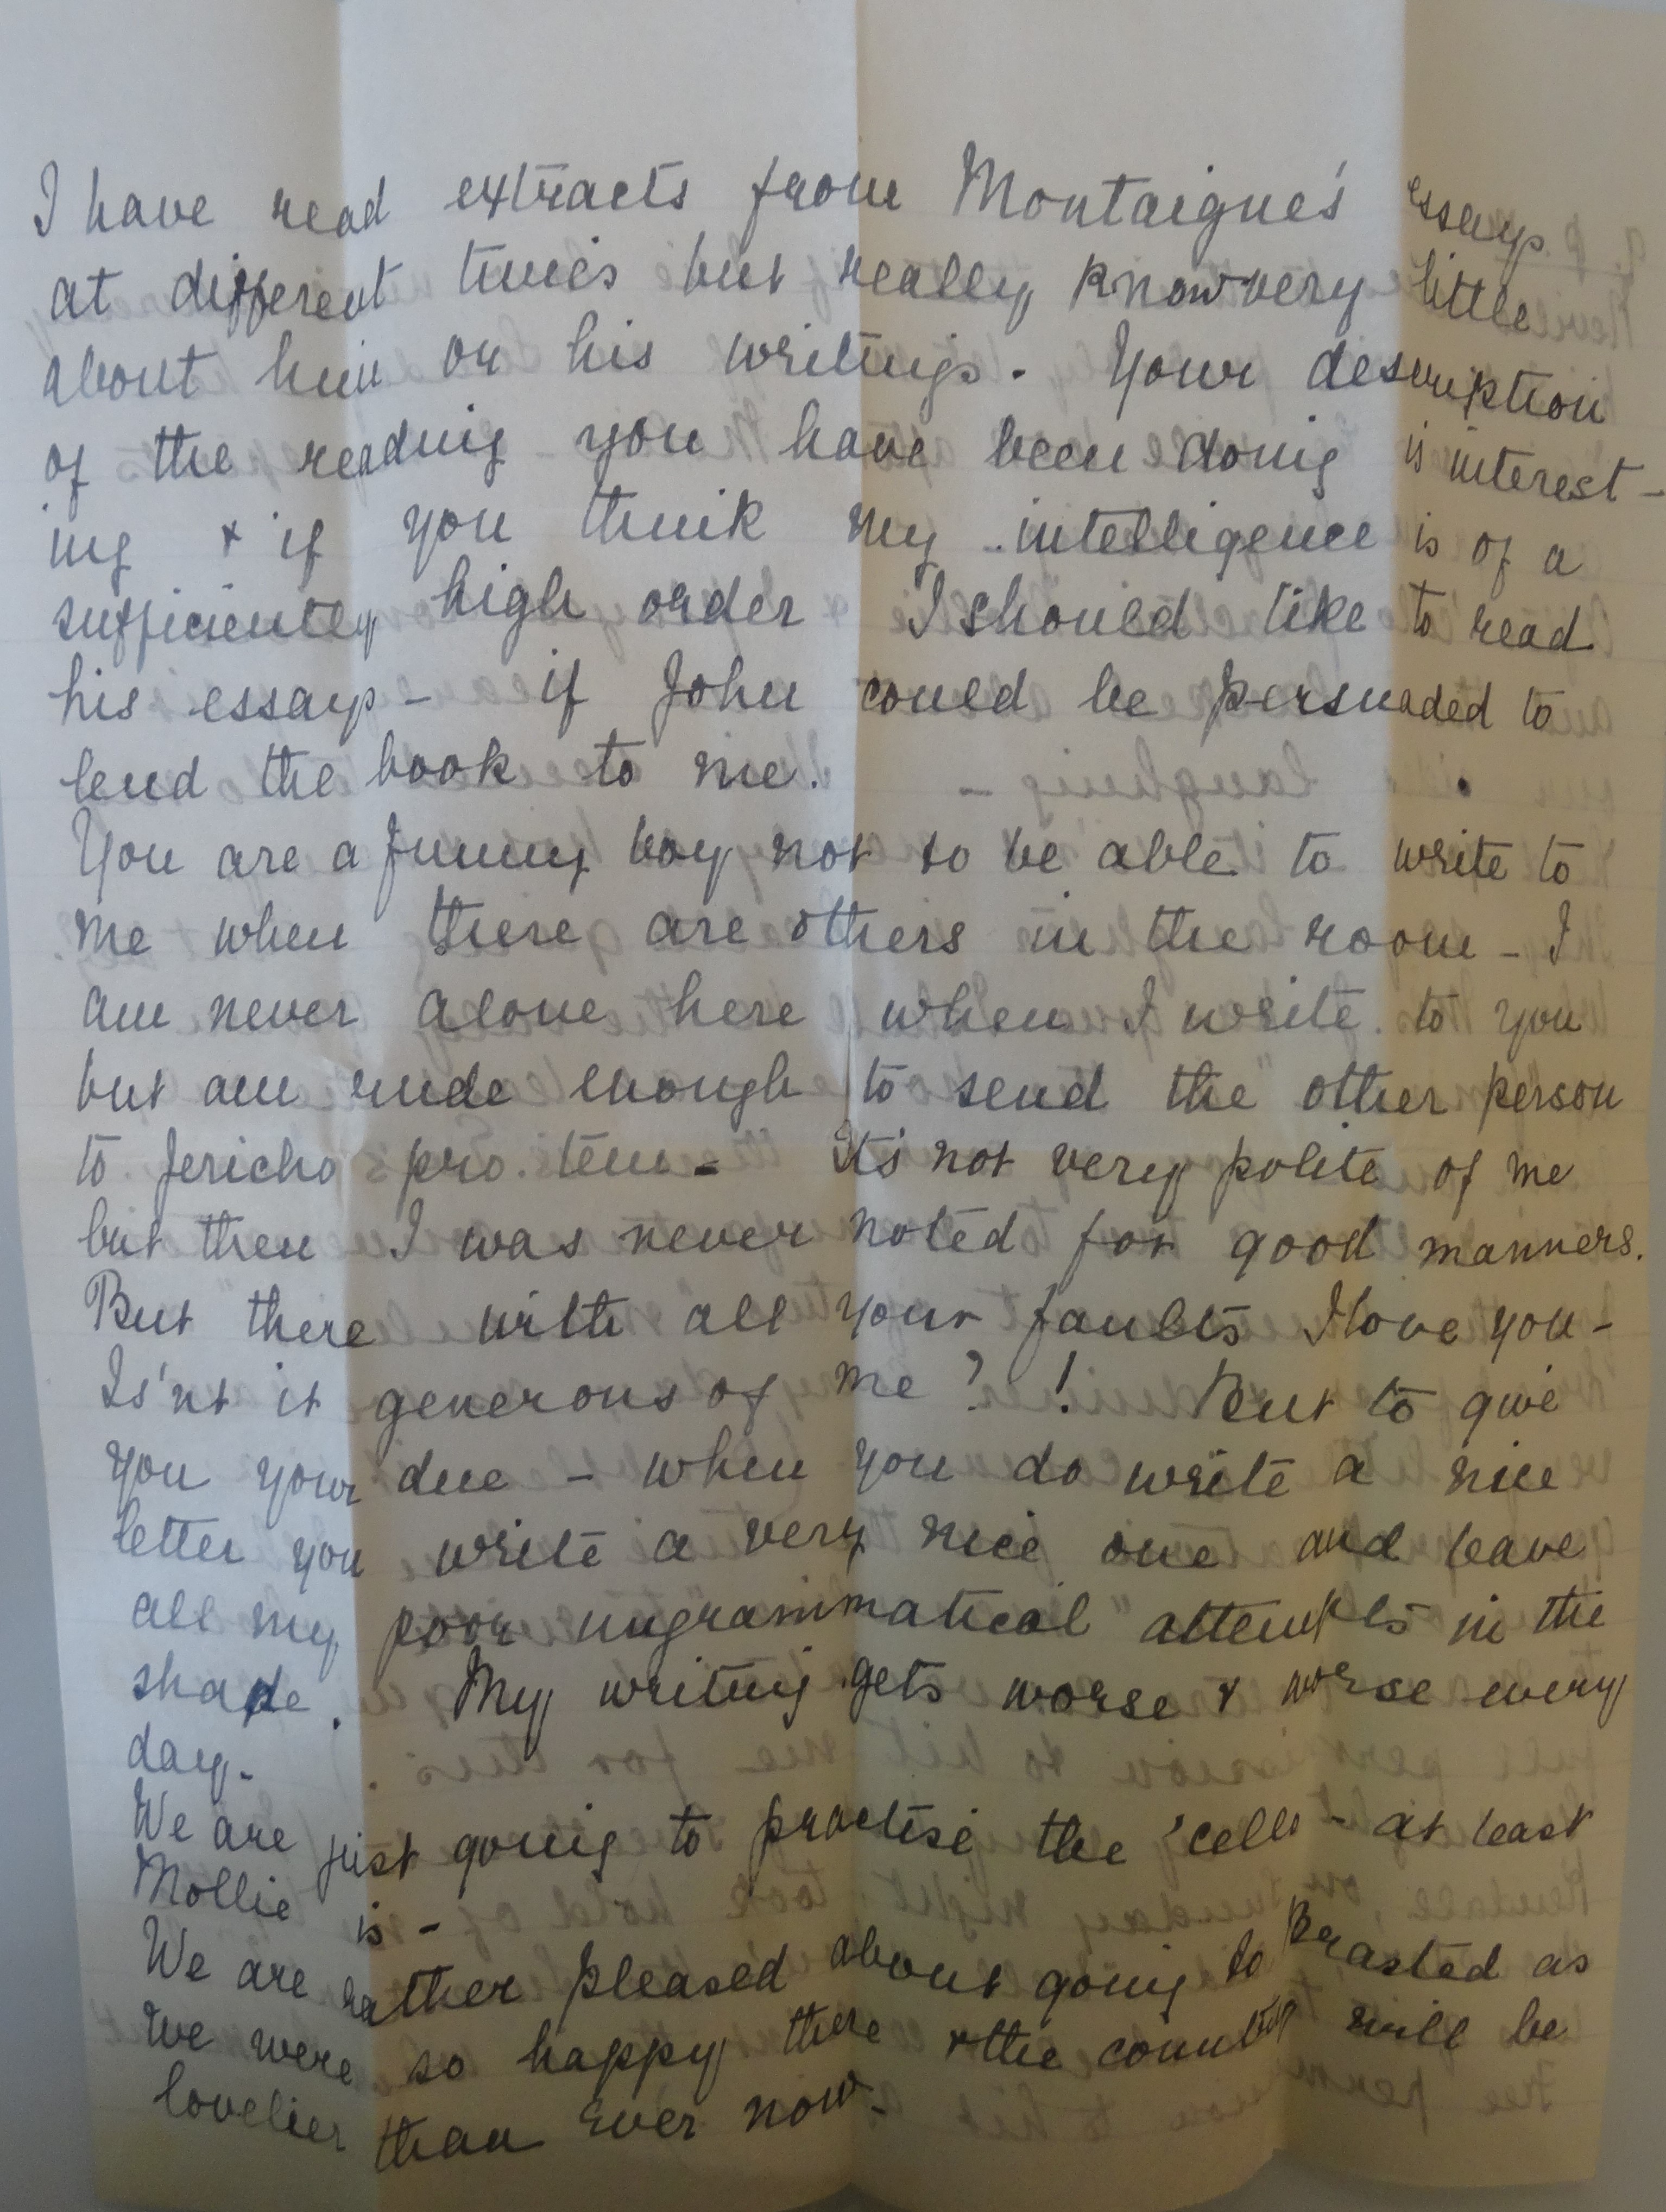 I have read extracts from Montaigne's essays
at different times but really know very little
about him or his writings. Your description
of the reading you have been doing is interest-
ing & if you think my intelligence is of a
sufficiently high order I should like to read
his essays - if John could be persuaded to
lend the book to me.
You are a funny boy not to be able to write to
me when there are others in the room - I
am never alone here when I write to you
but am rude enough to send the other person
to Jericho pro. tem - It's not very polite of me
but then I was never noted for good manners.
But there with all your faults I love you -
Is'nt it generous of me ? ! But to give
you your due - when you do write a nice
letter you write a very nice one and leave
all my poor "ungrammatical" attempts in the
shade. My writing gets worse & worse every
day.
We are just going to practise the 'cello - at least
Mollie is -
We are rather pleased about going to as
we were so happy there & the country will be
lovelier than ever now -